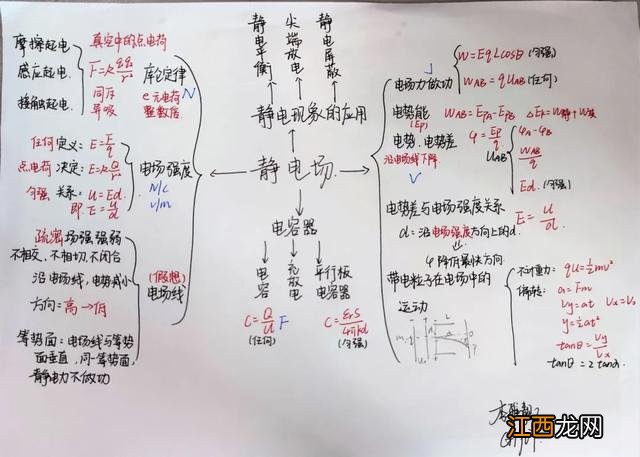 摩擦起电
感应起电
接触起电
真空中的点电荷
同斥
异吸
库仑定律
e元电荷
整数倍
N
任何 定义: E=F/q
点电荷 决定: E=kQ/r²
匀强 关系: U=Ed
即 E=U/d
电场强度
N/C
V/m
疏密 场强强弱
不相交、不相切、不闭合
沿电场线,电势减小
方向: 高→低
(假想)
电场线
等势面: 电场线与等势
面垂直,同一等势面,
静电力不做功
静电平衡
尖端放电
静电屏蔽
静电现象的应用
静电场
电容器
电容
充放电
平行板电容器
C=Q/U F
(任何)
C=εrS/4πkd
(匀强)
J
电场力做功
W=EqLcosθ (匀强)
WAB=qUAB (任何)
电势能
(Ep)
WAB=EPA-EPB
电势、电势差
沿电场线下降
V
φ=Ep/q
UAB
φA-φB
WAB/q
Ed (匀强)
电势差与电场强度关系
E=U/d
d: 沿电场强度方向上的d
φ降低最快方向
带电粒子在电场中的
运动
不计重力: qU=½mv²
偏转: a=Fm
Vy=at Vx=V₀
y=½at²
tanθ=Vy/Vx
tanθ=2tanα
江西龙网